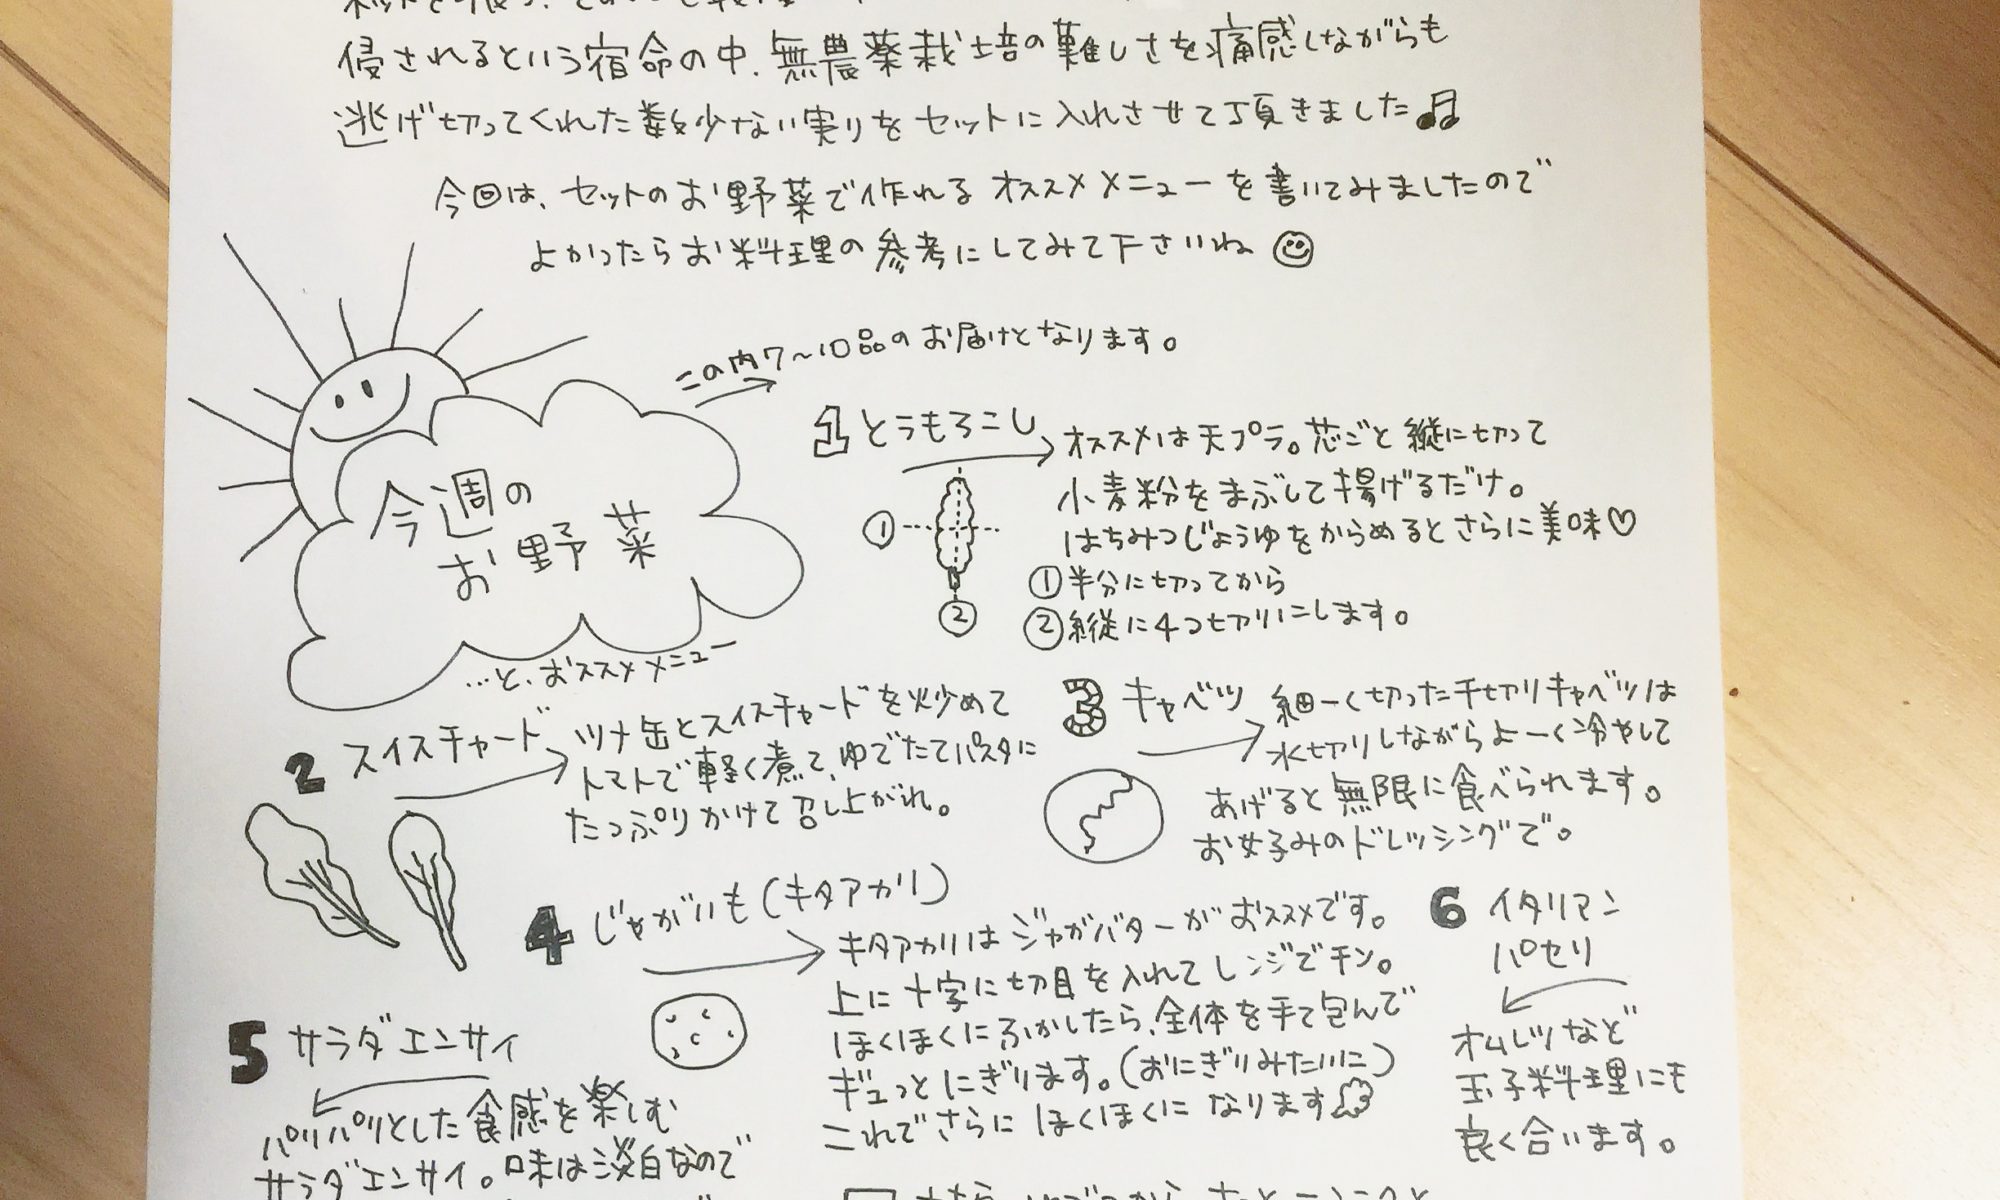 侵されるという宿命の中、無農薬栽培の難しさを痛感しながらも
逃げ切ってくれた数少ない実りをセットに入れさせて頂きました♫
今回は、セットのお野菜で作れるオススメメニューを書いてみましたので
よかったらお料理の参考にしてみて下さいね☺
この内7〜10品のお届けとなります。
今週の
お野菜
…と、おススメメニュー
1 とうもろこし
オススメは天プラ。芯ごと縦に切って
小麦粉をまぶして揚げるだけ。
はちみつじょうゆをからめるとさらに美味♡
①半分に切ってから
②縦に4つ切りにします。
①
②
2 スイスチャード
ツナ缶とスイスチャードを炒めて
トマトで軽く煮て、ゆでたてパスタに
たっぷりかけて召し上がれ。
3 キャベツ
細ーく切った千切りキャベツは
水切りしながらよーく冷やして
あげると無限に食べられます。
お好みのドレッシングで。
4 じゃがいも(キタアカリ)
キタアカリはジャガバターがおススメです。
上に十字に切目を入れてレンジでチン。
ほくほくにふかしたら、全体を手で包んで
ギュっとにぎります。(おにぎりみたいに)
これでさらにほくほくになります
5 サラダエンサイ
パリパリとした食感を楽しむ
サラダエンサイ。味は淡白なので
6 イタリアン
パセリ
オムレツなど
玉子料理にも
良く合います。